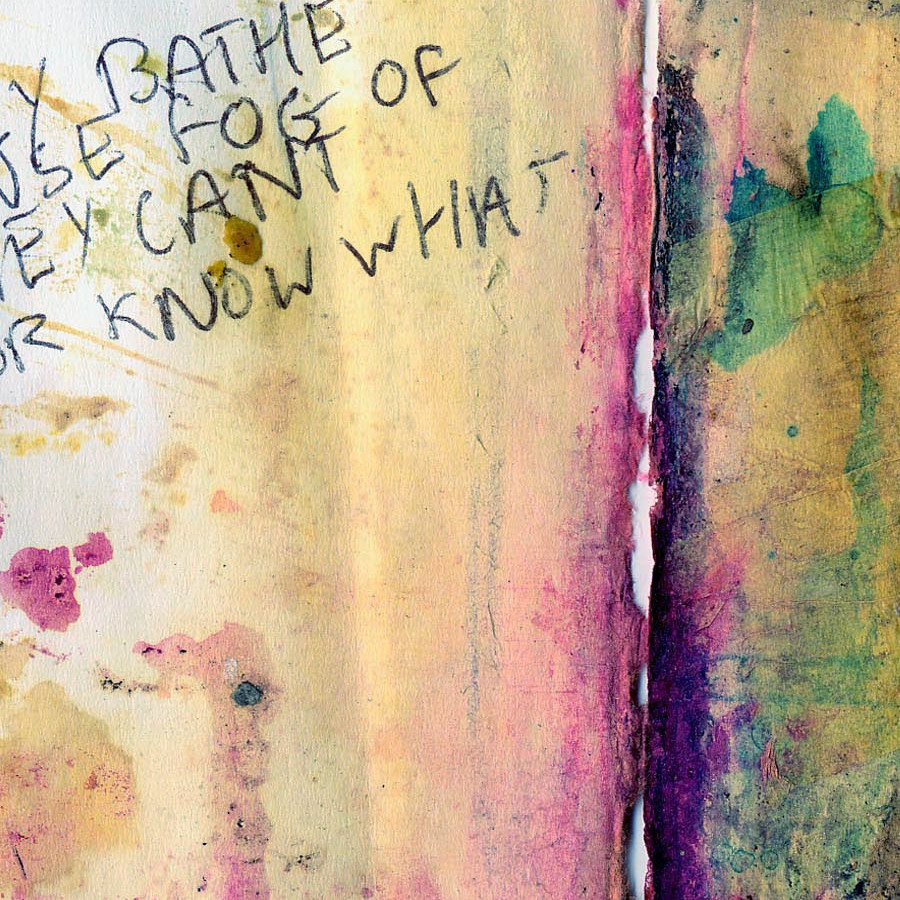 Y BATHE
USE FOG OF
HEY CANT
OR KNOW WHAT